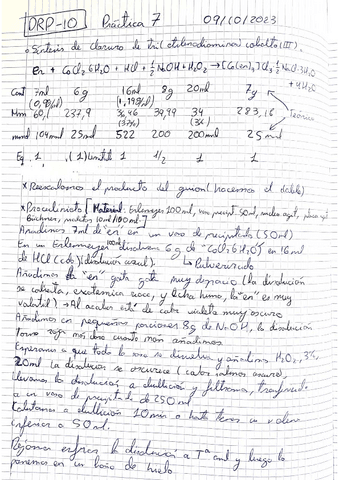 DRP-10 Práctica 7 09/10/2023
Síntesis de cloruro de tri(etilendiamino) cobalto (III).
en + CoCl₂·6H₂O + HCl + ½ NaOH + H₂O₂ → [Co(en)₃]Cl₃ · ½ NaCl·3H₂O
+ 4H₂O
Cant 7ml 6g 16ml 8g 20ml 7g
(0,9 g/ml) (1,19 g/ml) Teórico
Mm 60,1 237,9 36,46 39,99 34 283,16
(37%) (3%)
mmol 104mmol 25mmol 522 200 200mmol 25mmol
Eq. 1 , (1) limitante 1 1/2 1 1
* Reescalamos el producto del guion (hacemos el doble)
* Procedimiento [Material: Erlenmeyer 100ml, vaso precipit. 50ml,
Büchner, probetas 10ml/100ml]
Añadimos 7ml de "en" en un vaso de precipitados (50ml)
En un Erlenmeyer 100ml disolvemos 6g de CoCl₂·6H₂O en 16ml
de HCl (cdo) (disolución azul). → Pulverizado
Añadimos la "en" gota gota muy despacio (la disolución
se calienta, exotérmica, y echa humo, la "en" es muy
volátil) → Al acabar está de color violeta muy oscuro
Añadimos en pequeñas porciones 8g de NaOH, la disolución
toma más cuanto más añadimos
Esperamos a que todo la se disuelva y añadimos H₂O₂, 3%,
20ml La disolución se oscurece (color intenso oscuro),
Llevamos la disolución a ebullición y filtramos,
a un vaso de precipitado de 250ml
Calentamos a ebullición 10min o hasta tener un volumen
inferior a 50ml.
Dejamos enfriar la disolución a Tª amb y luego la
ponemos en un baño de hielo.